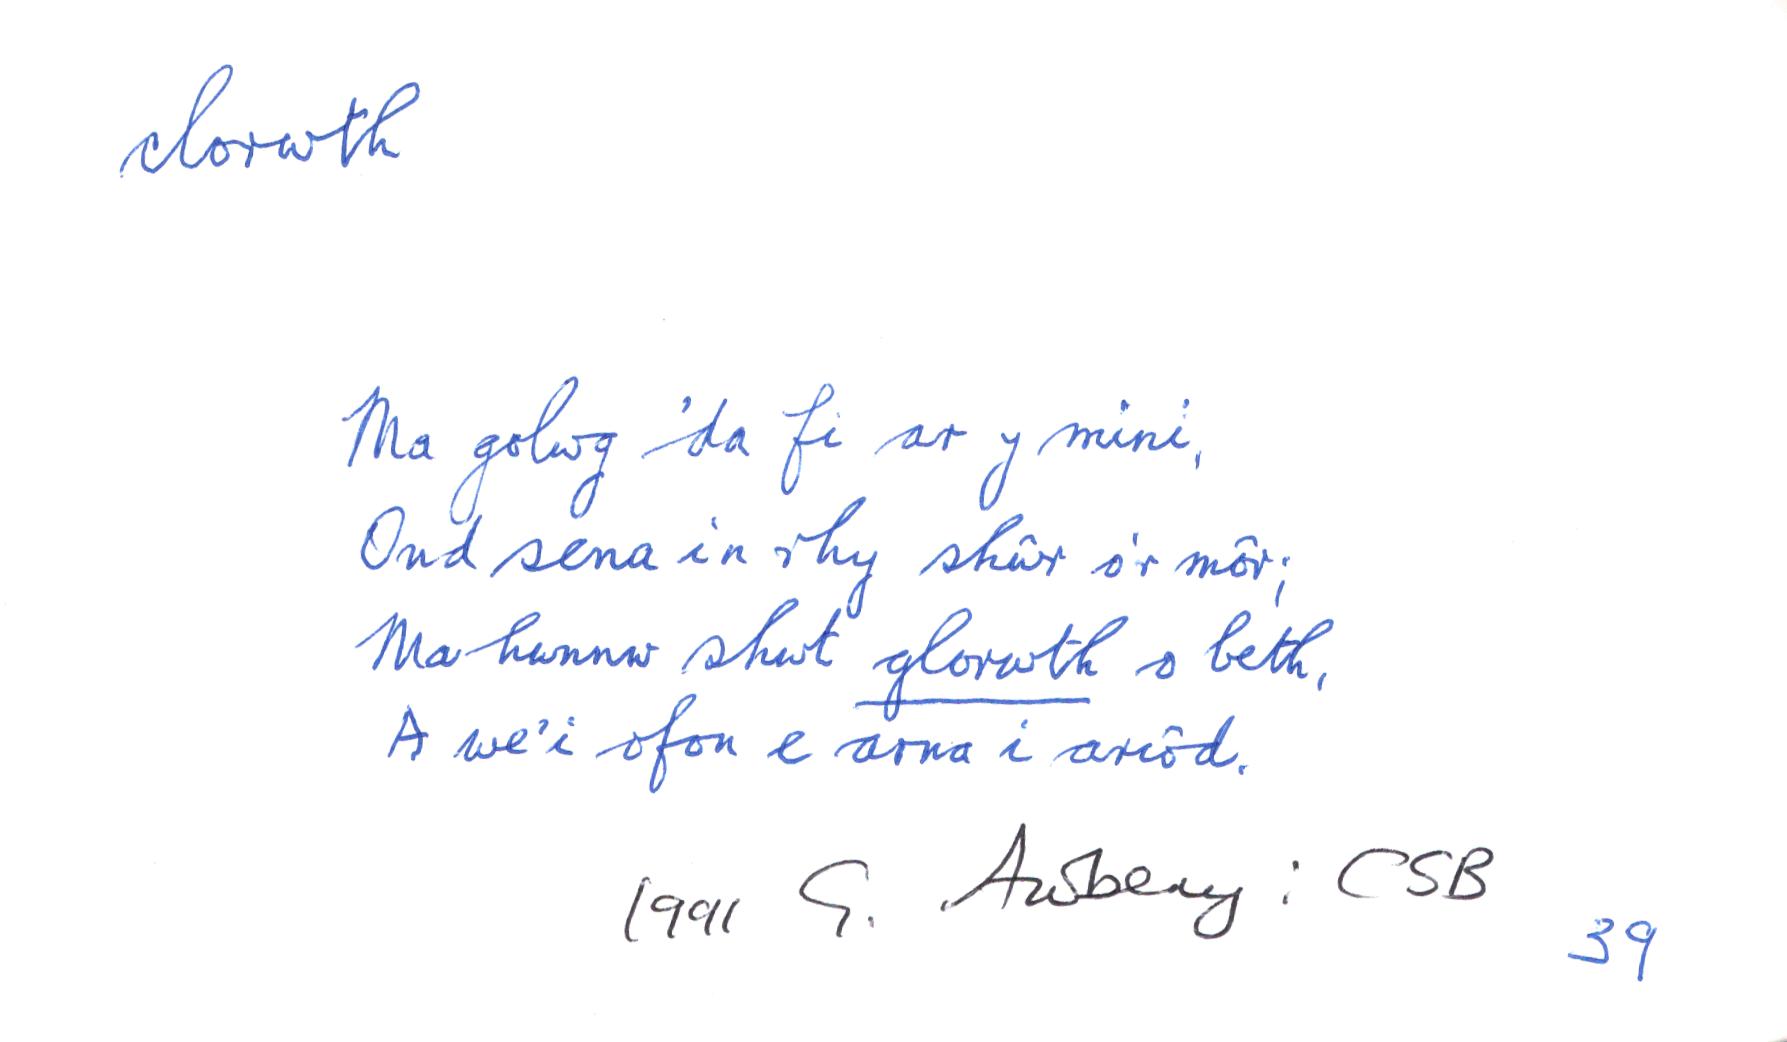 clorwth
Ma golwg 'da fi ar y mini,
Ond sena in rhy shŵr o'r môr;
Ma hwnnw shwt glorwth o beth,
A we'i ofon e arna i ariôd.
1991 G. Awbery : CSB
39